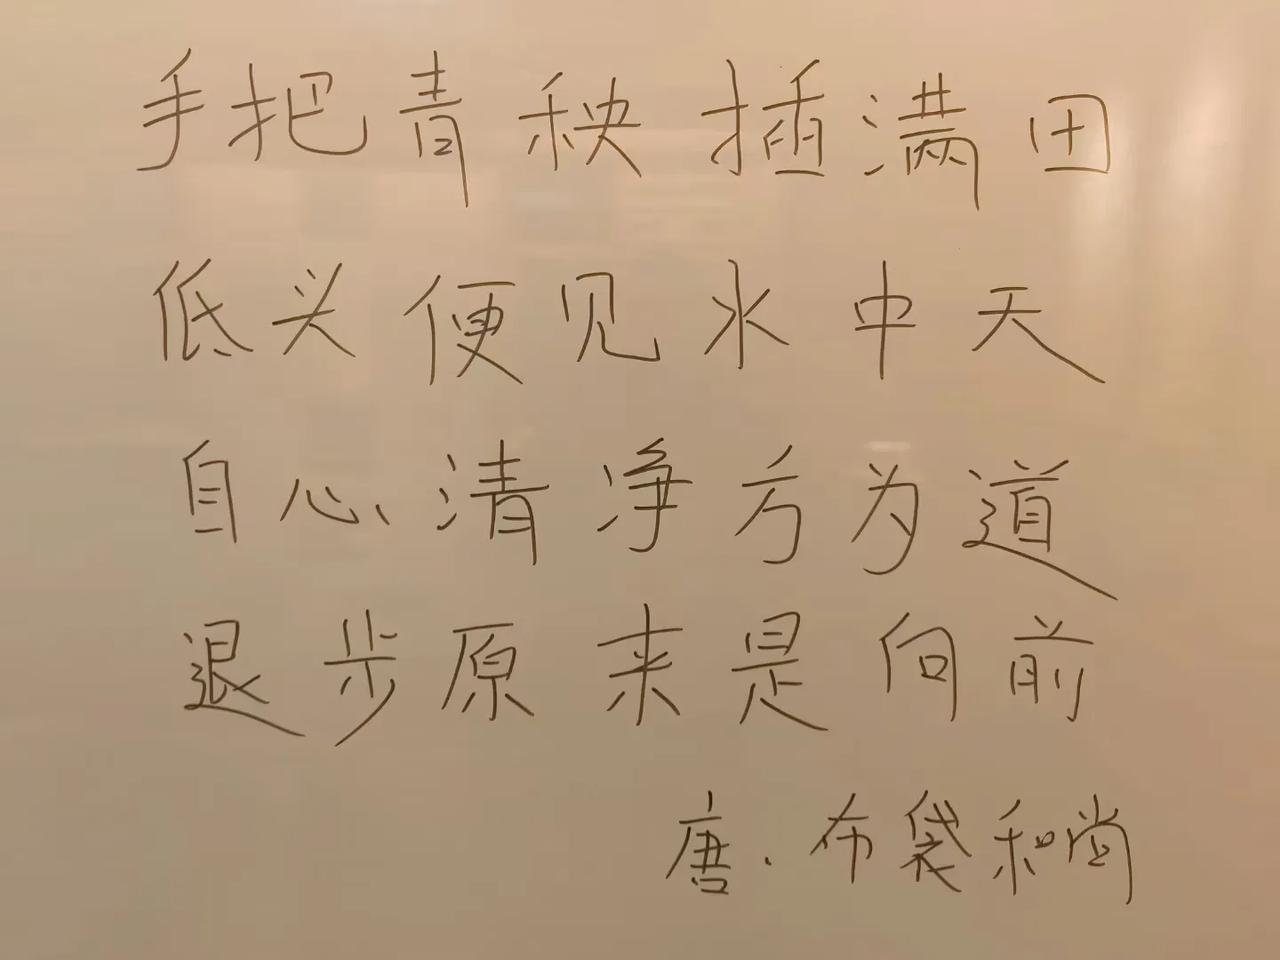 手把青秧插满田
低头便见水中天
自心清净方为道
退步原来是向前
唐.布袋和尚